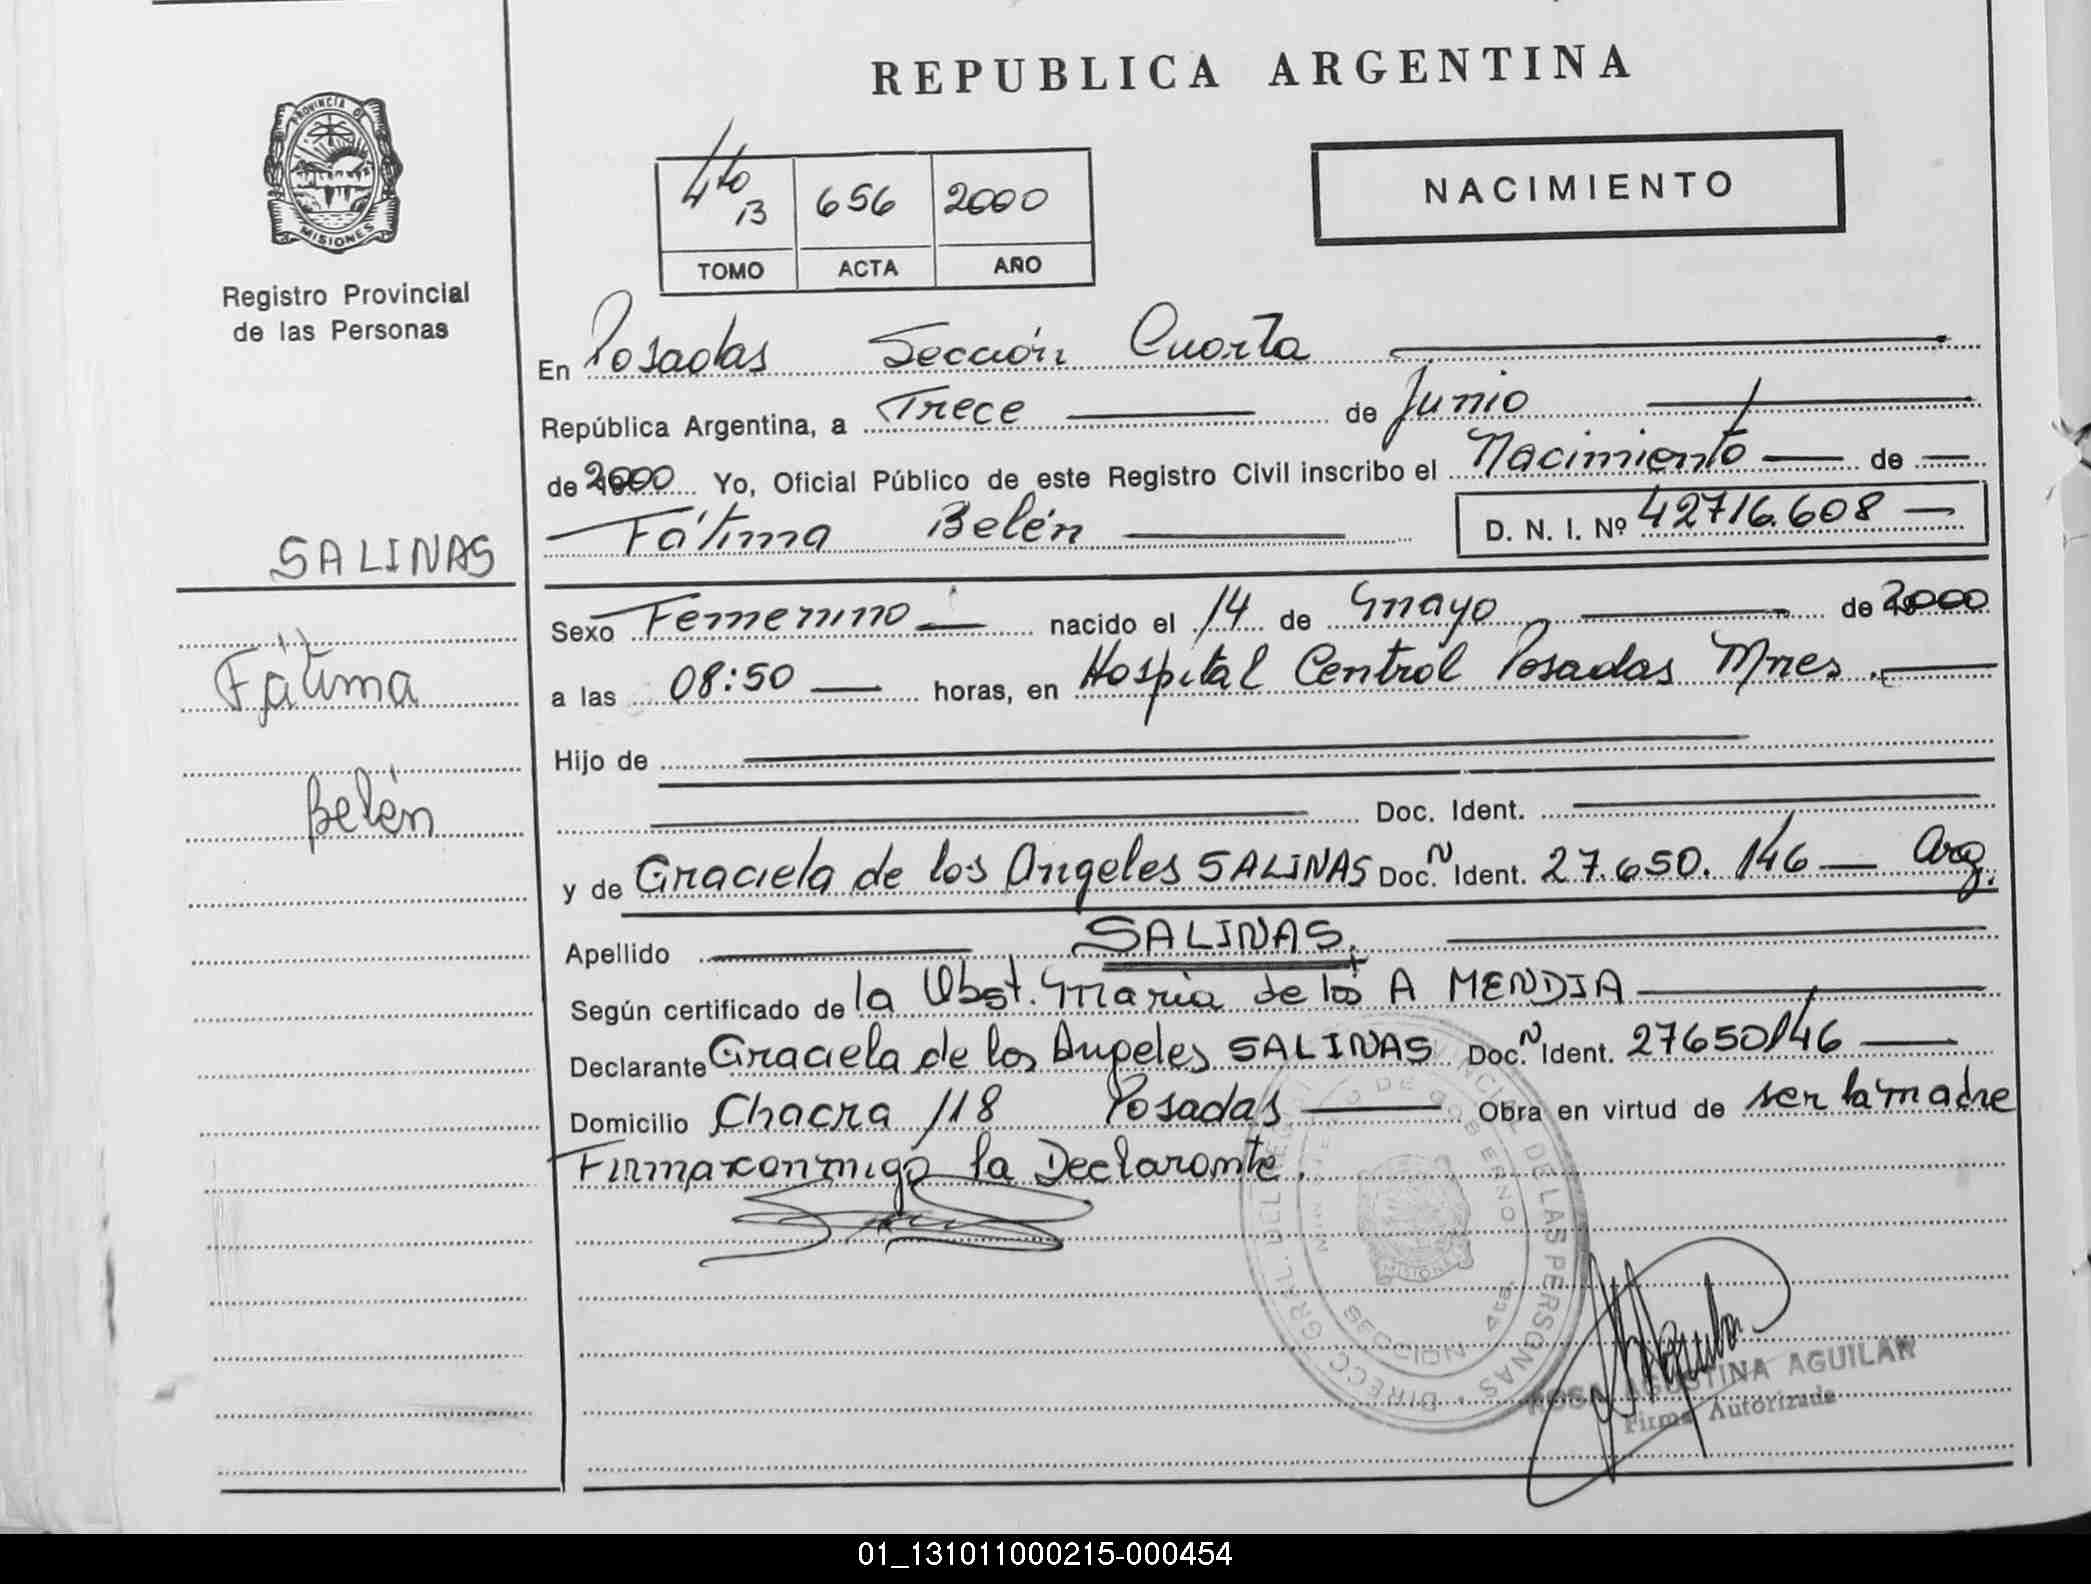 REPUBLICA ARGENTINA
PROVINCIA DE
MISIONES
Registro Provincial
de las Personas
4to B 656 2000
TOMO ACTA AÑO
NACIMIENTO
En Posadas Sección Cuarta
República Argentina, a Trece de Junio
de 2000 Yo, Oficial Público de este Registro Civil inscribo el Nacimiento de
Fátima Belén D. N. I. Nº 42716.608
SALINAS
Fátima
Belén
Sexo Femenino nacido el 14 de mayo de 2000
a las 08:50 horas, en Hospital Central Posadas Mnes.
Hijo de
Doc. Ident.
y de Graciela de los Angeles SALINAS Doc. N Ident. 27.650.146 Arg.
Apellido SALINAS.
Según certificado de la Obst. Maria de los A MENDIA
Declarante Graciela de los Angeles SALINAS Doc. N Ident. 27650146
Domicilio Chacra 118 Posadas Obra en virtud de ser la madre
Firma conmigo la Declarante.
DIRECC. GRAL. DEL REG. PROVINCIAL DE LAS PERSONAS
MINISTERIO DE GOBIERNO
MISIONES
SECCION 4ta.
ROSA AGUSTINA AGUILAR
Firma Autorizada
01_131011000215-000454